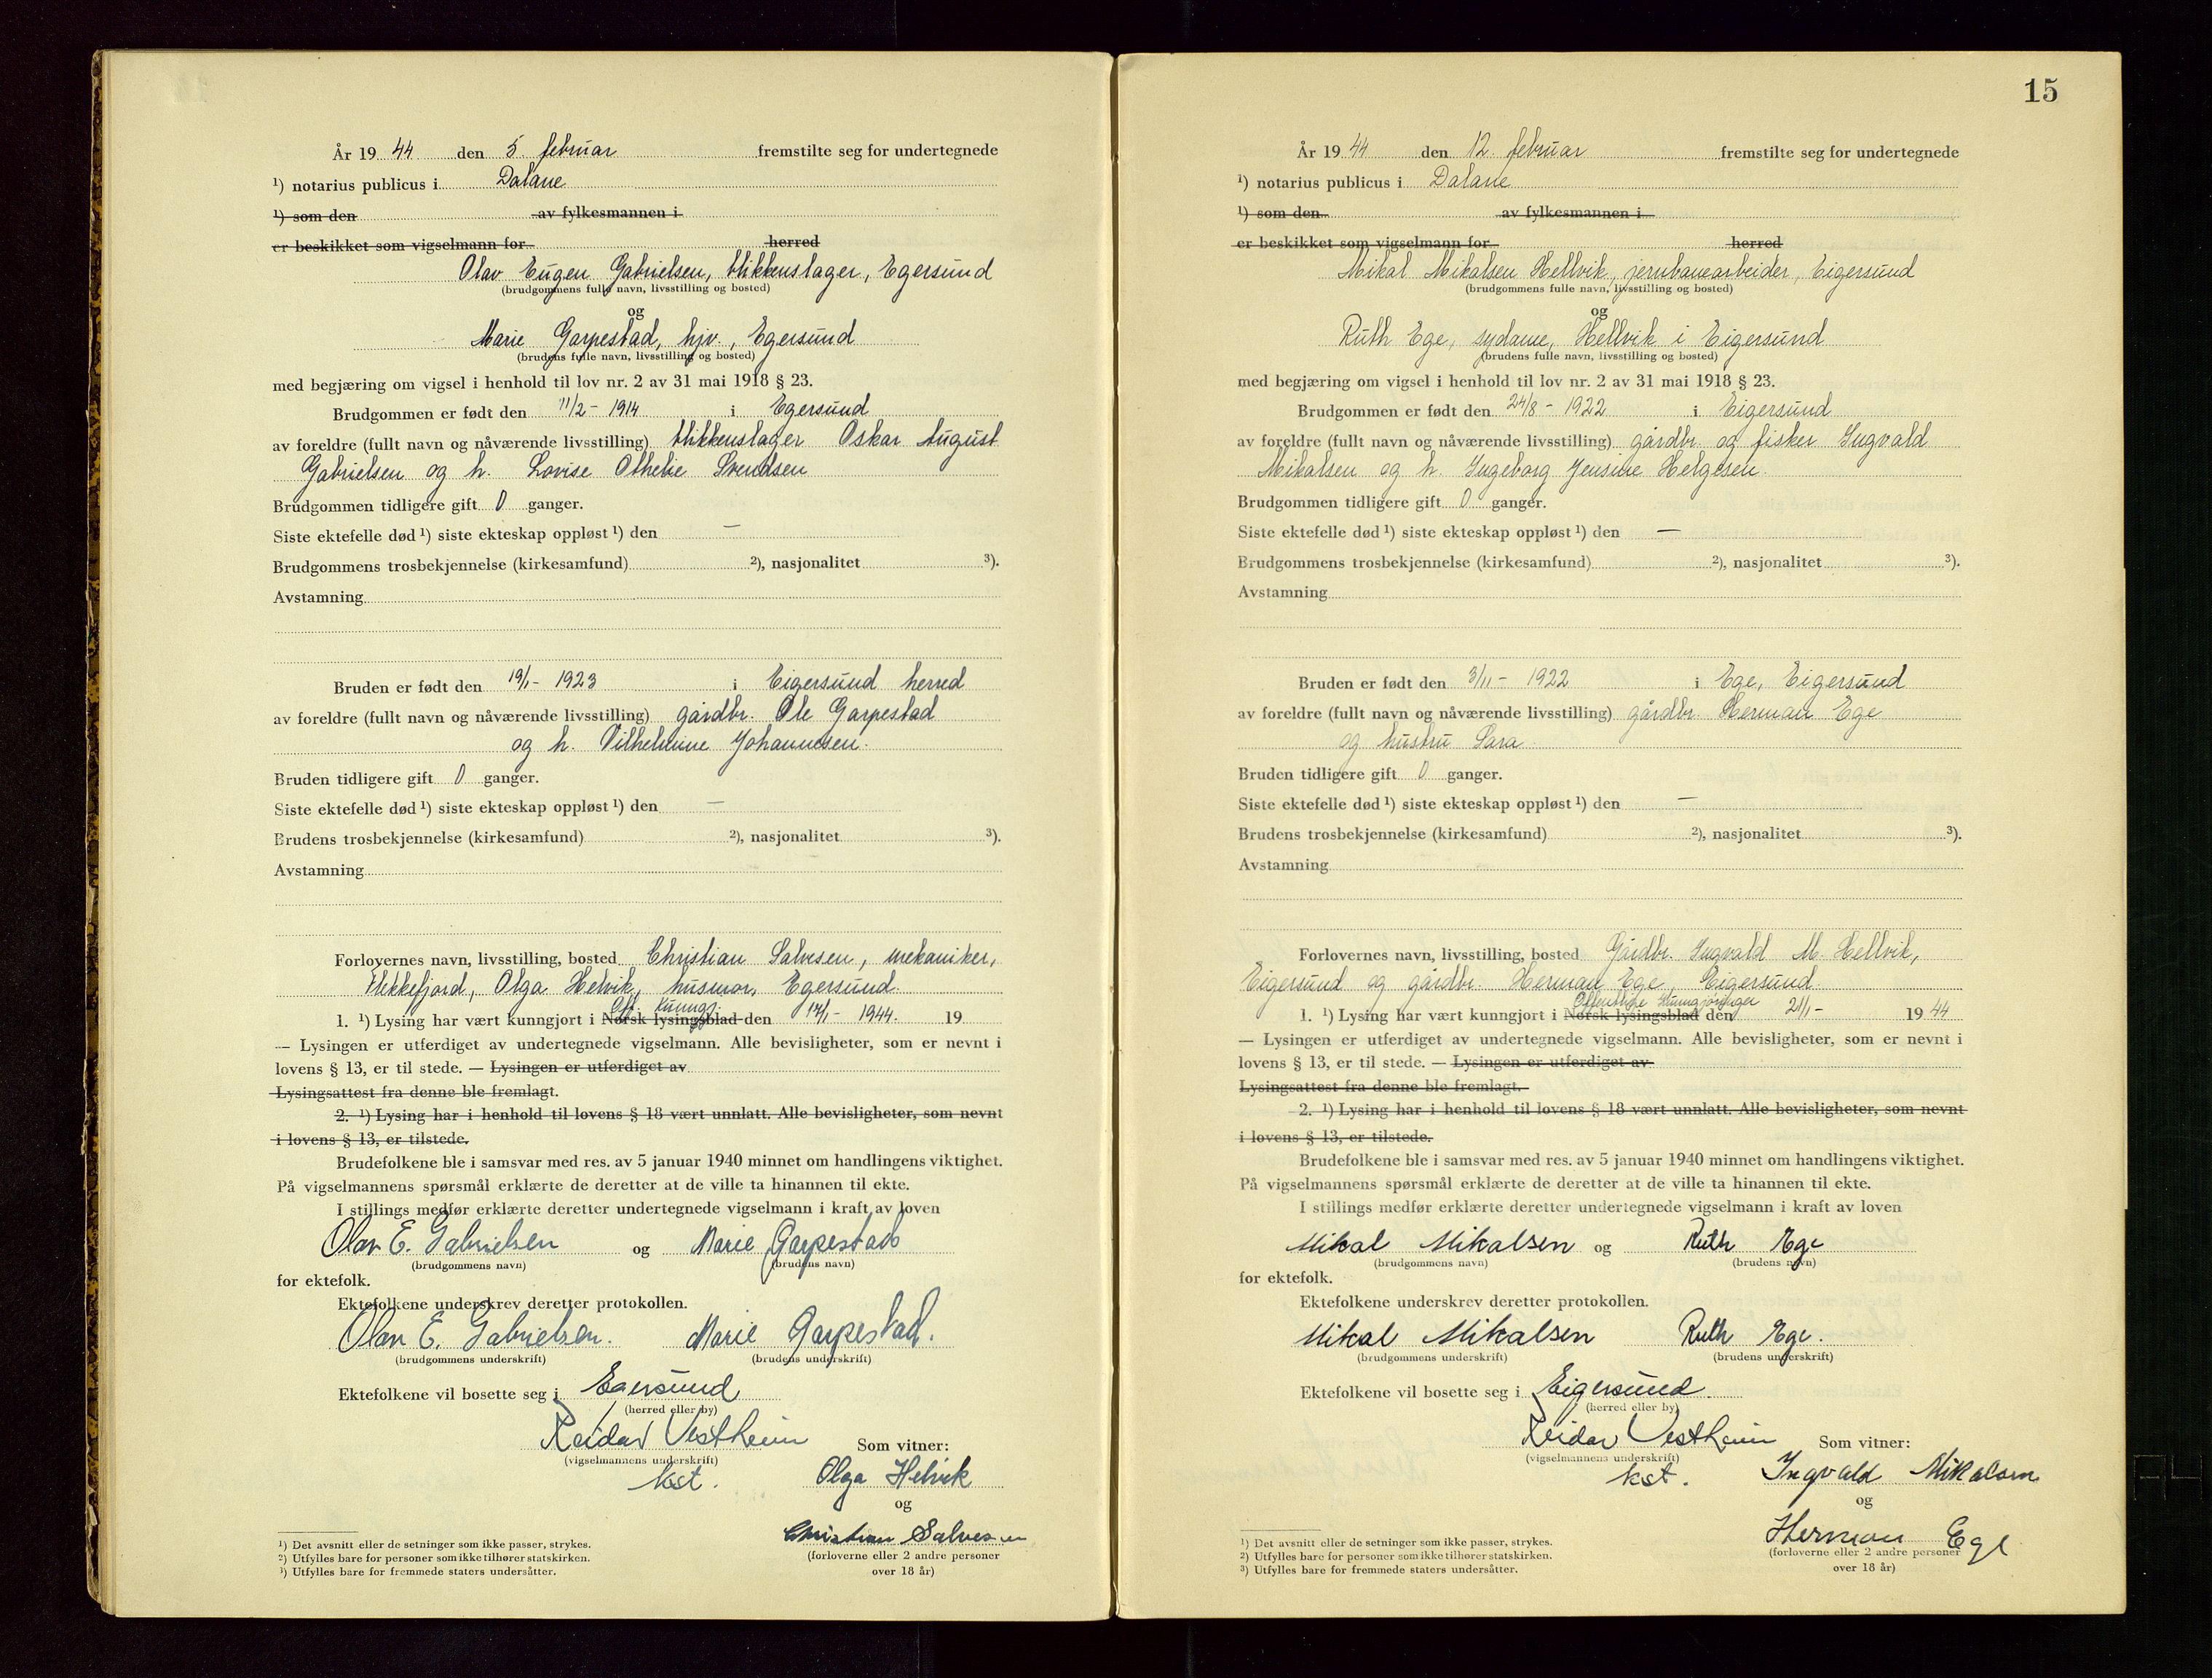 År 19 44 den 5 februar fremstilte seg for undertegnede
¹) notarius publicus i Dalane
¹) som den av fylkesmannen i
er beskikket som vigselmann for herred
Olav Eugen Gabrielsen, blikkenslager, Egersund
(brudgommens fulle navn, livsstilling og bosted)
og
Marie Garpestad, hjv., Egersund
(brudens fulle navn, livsstilling og bosted)
med begjæring om vigsel i henhold til lov nr. 2 av 31 mai 1918 § 23.
Brudgommen er født den 11/2 - 1914 i Egersund
av foreldre (fullt navn og nåværende livsstilling) blikkenslager Oskar August
Gabrielsen og h. Lovise Othelie Svendsen
Brudgommen tidligere gift 0 ganger.
Siste ektefelle død ¹) siste ekteskap oppløst ¹) den —
Brudgommens trosbekjennelse (kirkesamfund) ²), nasjonalitet ³).
Avstamning
Bruden er født den 19/1 - 1923 i Eigersund herred
av foreldre (fullt navn og nåværende livsstilling) gårdbr. Ole Garpestad
og h. Vilhelmine Johannesen.
Bruden tidligere gift 0 ganger.
Siste ektefelle død ¹) siste ekteskap oppløst ¹) den —
Brudens trosbekjennelse (kirkesamfund) ²), nasjonalitet ³).
Avstamning
Forlovernes navn, livsstilling, bosted Christian Salvesen, mekaniker,
Flekkefjord, Olga Helvik, husmor, Egersund.
Off. kunngj.
1. ¹) Lysing har vært kunngjort i Norsk lysingsblad den 14/1 - 1944. 19
— Lysingen er utferdiget av undertegnede vigselmann. Alle bevisligheter, som er nevnt i
lovens § 13, er til stede. — Lysingen er utferdiget av
Lysingsattest fra denne ble fremlagt.
2. ¹) Lysing har i henhold til lovens § 18 vært unnlatt. Alle bevisligheter, som nevnt
i lovens § 13, er tilstede.
Brudefolkene ble i samsvar med res. av 5 januar 1940 minnet om handlingens viktighet.
På vigselmannens spørsmål erklærte de deretter at de ville ta hinannen til ekte.
I stillings medfør erklærte deretter undertegnede vigselmann i kraft av loven
Olav E. Gabrielsen og Marie Garpestad
(brudgommens navn) (brudens navn)
for ektefolk.
Ektefolkene underskrev deretter protokollen.
Olav E. Gabrielsen. Marie Garpestad.
(brudgommens underskrift) (brudens underskrift)
Ektefolkene vil bosette seg i Egersund
(herred eller by)
Reidar Vestheim Som vitner:
(vigselmannens underskrift)
kst. Olga Helvik
og
Christian Salvesen
(forloverne eller 2 andre personer
over 18 år)
¹) Det avsnitt eller de setninger som ikke passer, strykes.
²) Utfylles bare for personer som ikke tilhører statskirken.
³) Utfylles bare for fremmede staters undersåtter.
15
År 19 44 den 12. februar fremstilte seg for undertegnede
¹) notarius publicus i Dalane
¹) som den av fylkesmannen i
er beskikket som vigselmann for herred
Mikal Mikalsen Hellvik, jernbanearbeider, Eigersund
(brudgommens fulle navn, livsstilling og bosted)
og
Ruth Ege, sydame, Hellvik i Eigersund
(brudens fulle navn, livsstilling og bosted)
med begjæring om vigsel i henhold til lov nr. 2 av 31 mai 1918 § 23.
Brudgommen er født den 24/8 - 1922 i Eigersund
av foreldre (fullt navn og nåværende livsstilling) gårdbr. og fisker Ingvald
Mikalsen og h. Ingeborg Jensine Helgesen.
Brudgommen tidligere gift 0 ganger.
Siste ektefelle død ¹) siste ekteskap oppløst ¹) den —
Brudgommens trosbekjennelse (kirkesamfund) ²), nasjonalitet ³).
Avstamning
Bruden er født den 3/11 - 1922 i Ege, Eigersund
av foreldre (fullt navn og nåværende livsstilling) gårdbr. Herman Ege
og hustru Sara
Bruden tidligere gift 0 ganger.
Siste ektefelle død ¹) siste ekteskap oppløst ¹) den —
Brudens trosbekjennelse (kirkesamfund) ²), nasjonalitet ³).
Avstamning
Forlovernes navn, livsstilling, bosted Gårdbr. Ingvald M. Hellvik,
Eigersund og gårdbr. Herman Ege, Eigersund.
Offentlige Kunngjøringer
1. ¹) Lysing har vært kunngjort i Norsk lysingsblad den 21/1 - 19 44
— Lysingen er utferdiget av undertegnede vigselmann. Alle bevisligheter, som er nevnt i
lovens § 13, er til stede. — Lysingen er utferdiget av
Lysingsattest fra denne ble fremlagt.
2. ¹) Lysing har i henhold til lovens § 18 vært unnlatt. Alle bevisligheter, som nevnt
i lovens § 13, er tilstede.
Brudefolkene ble i samsvar med res. av 5 januar 1940 minnet om handlingens viktighet.
På vigselmannens spørsmål erklærte de deretter at de ville ta hinannen til ekte.
I stillings medfør erklærte deretter undertegnede vigselmann i kraft av loven
Mikal Mikalsen og Ruth Ege
(brudgommens navn) (brudens navn)
for ektefolk.
Ektefolkene underskrev deretter protokollen.
Mikal Mikalsen Ruth Ege.
(brudgommens underskrift) (brudens underskrift)
Ektefolkene vil bosette seg i Eigersund.
(herred eller by)
Reidar Vestheim Som vitner:
(vigselmannens underskrift)
kst. Ingvald Mikalsen
og
Herman Ege
(forloverne eller 2 andre personer
over 18 år)
¹) Det avsnitt eller de setninger som ikke passer, strykes.
²) Utfylles bare for personer som ikke tilhører statskirken.
³) Utfylles bare for fremmede staters undersåtter.